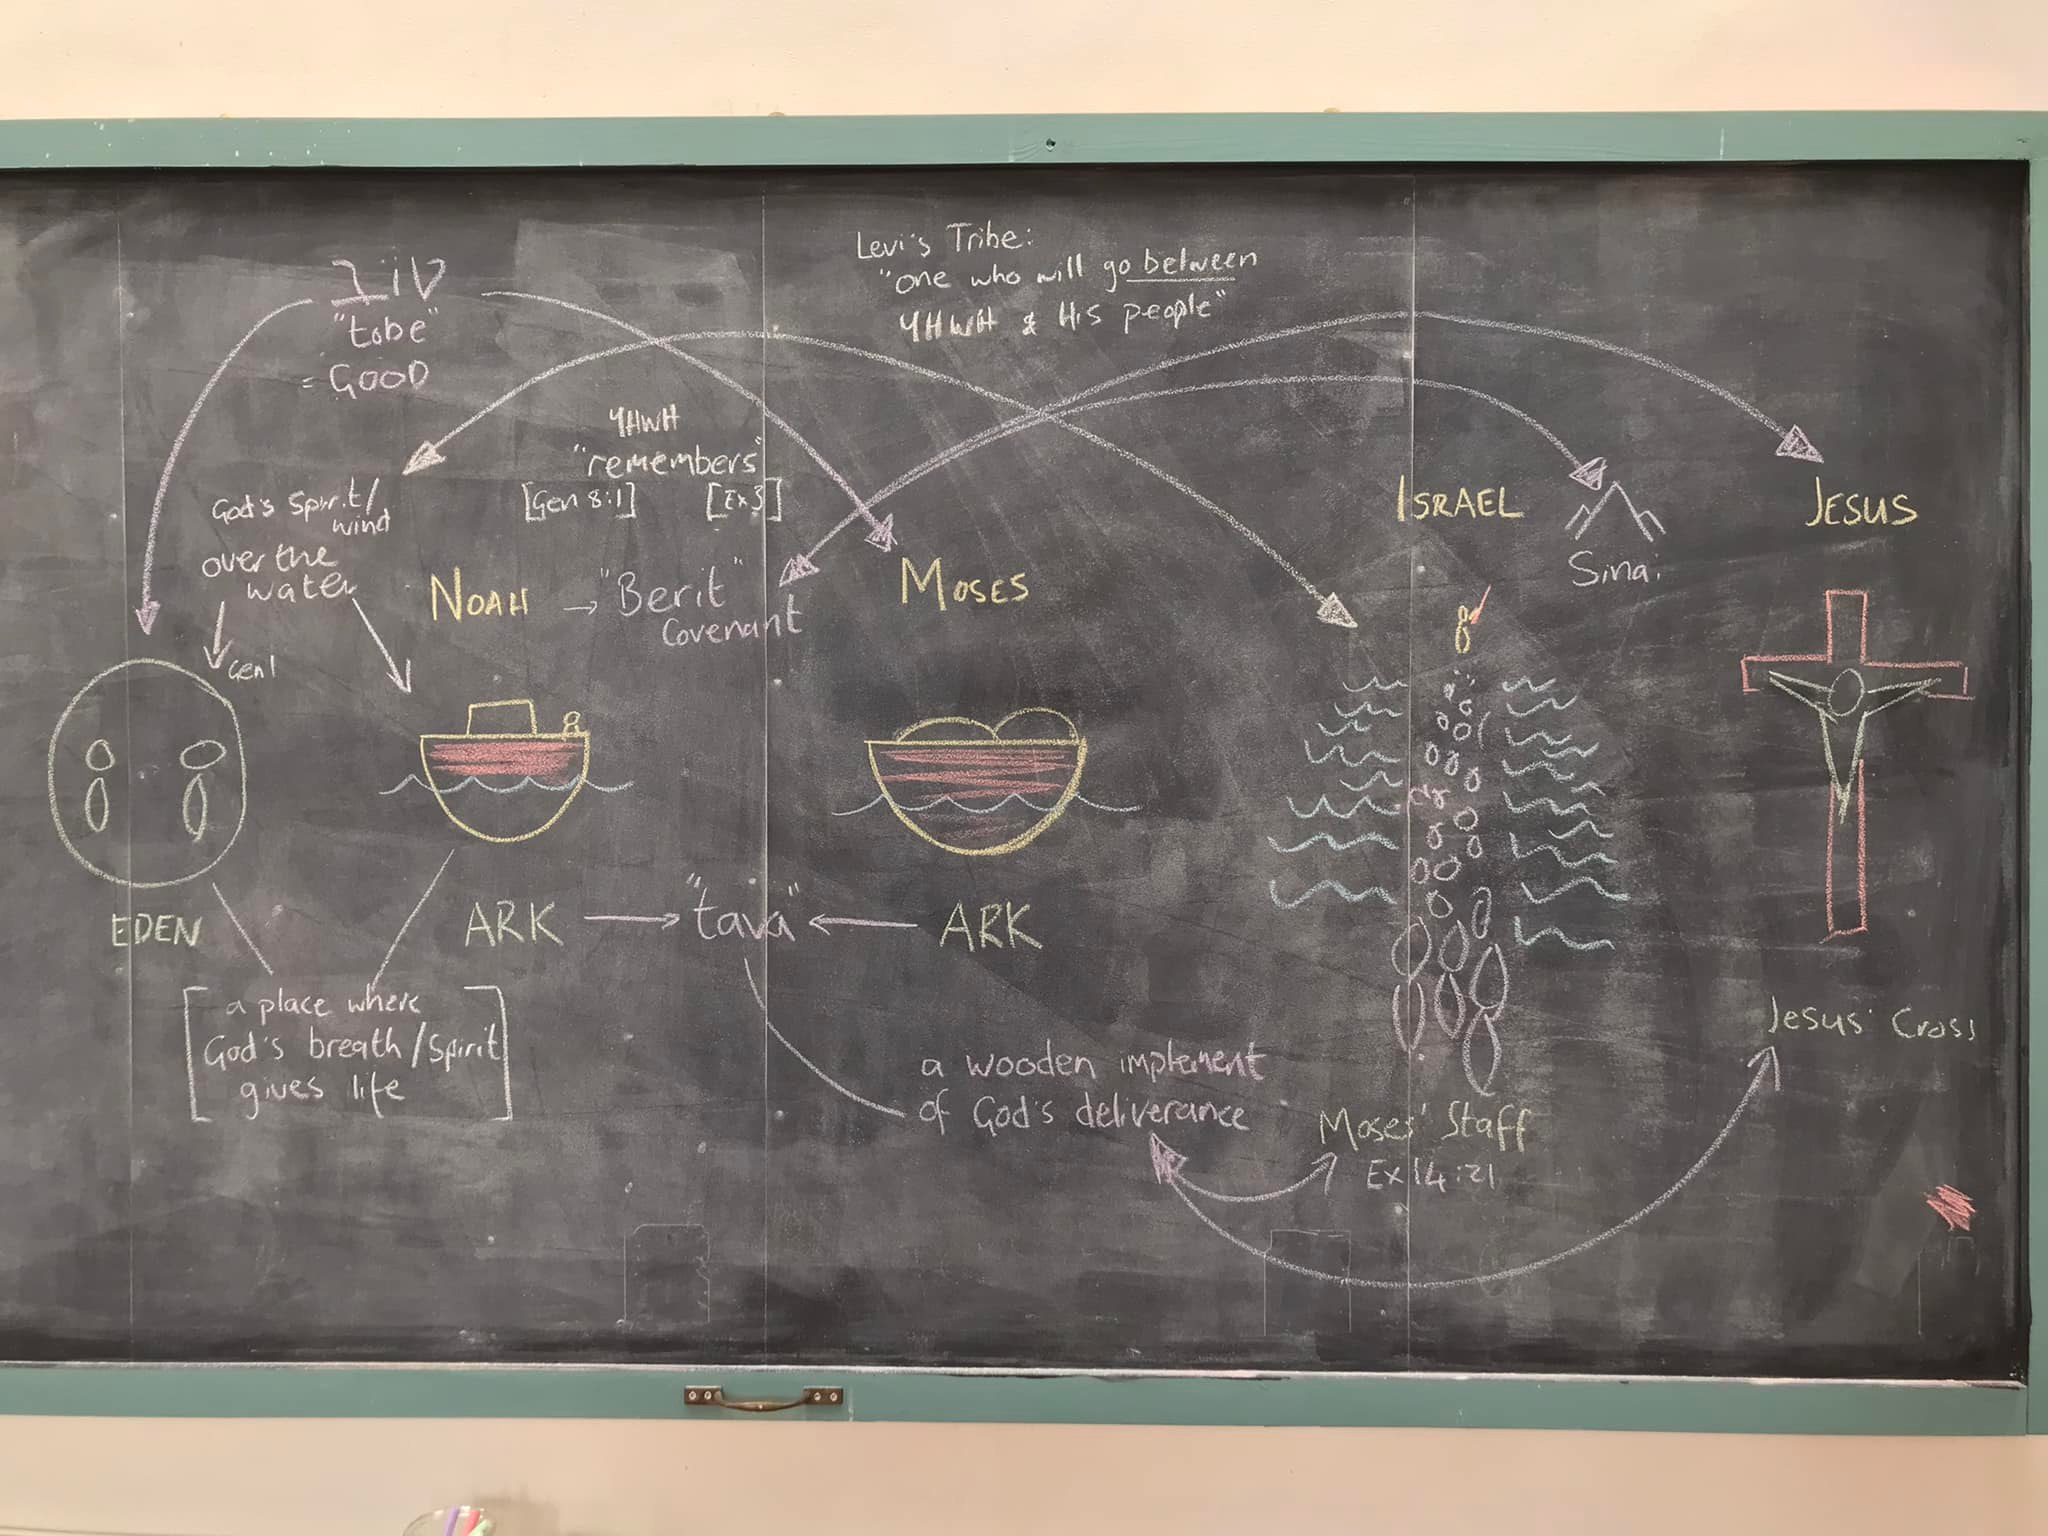 טוב
"tobe"
= GOOD
Levi's Tribe:
"one who will go between
YHWH & His people"
YHWH
"remembers"
[Gen 8:1] [Ex 3]
God's Spirit/
wind
over the
water
Gen 1
NOAH → "Berit"
Covenant
MOSES
ISRAEL
Sinai
JESUS
EDEN
ARK → "tava" ← ARK
[a place where
God's breath/Spirit
gives life]
a wooden implement
of God's deliverance
Moses' Staff
Ex 14:21
Jesus' Cross